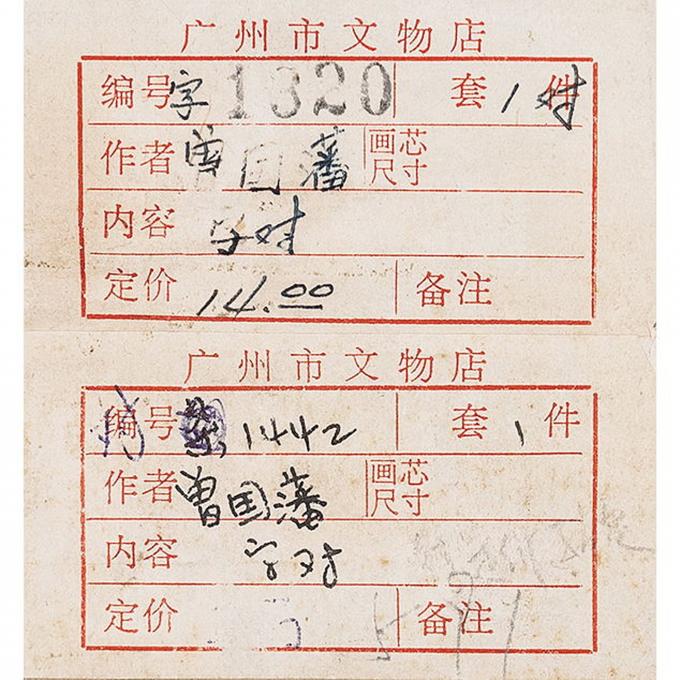 广州市文物店
编号 字 1320 套 1对 件
作者 曾国藩 画芯尺寸
内容 字对
定价 14.00 备注
广州市文物店
编号 1442 套 1 件
作者 曾国藩 画芯尺寸
内容 字对
定价 备注